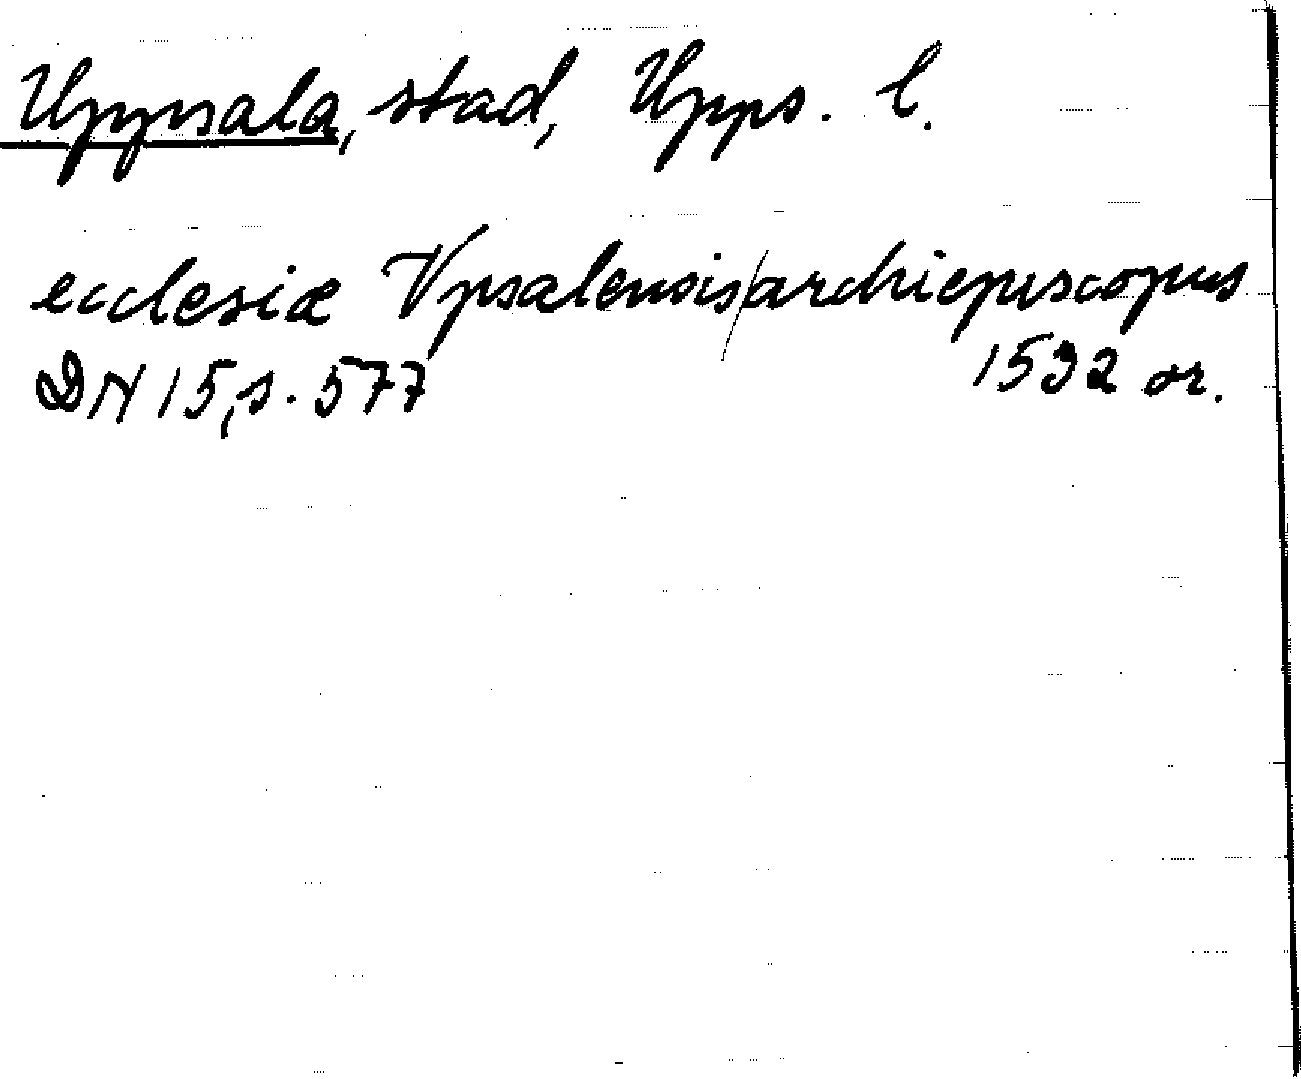 Uppsala, stad, Upps. l.
ecclesiæ Vpsalensis/archiepiscopus
DN 15, s. 577 1532 or.